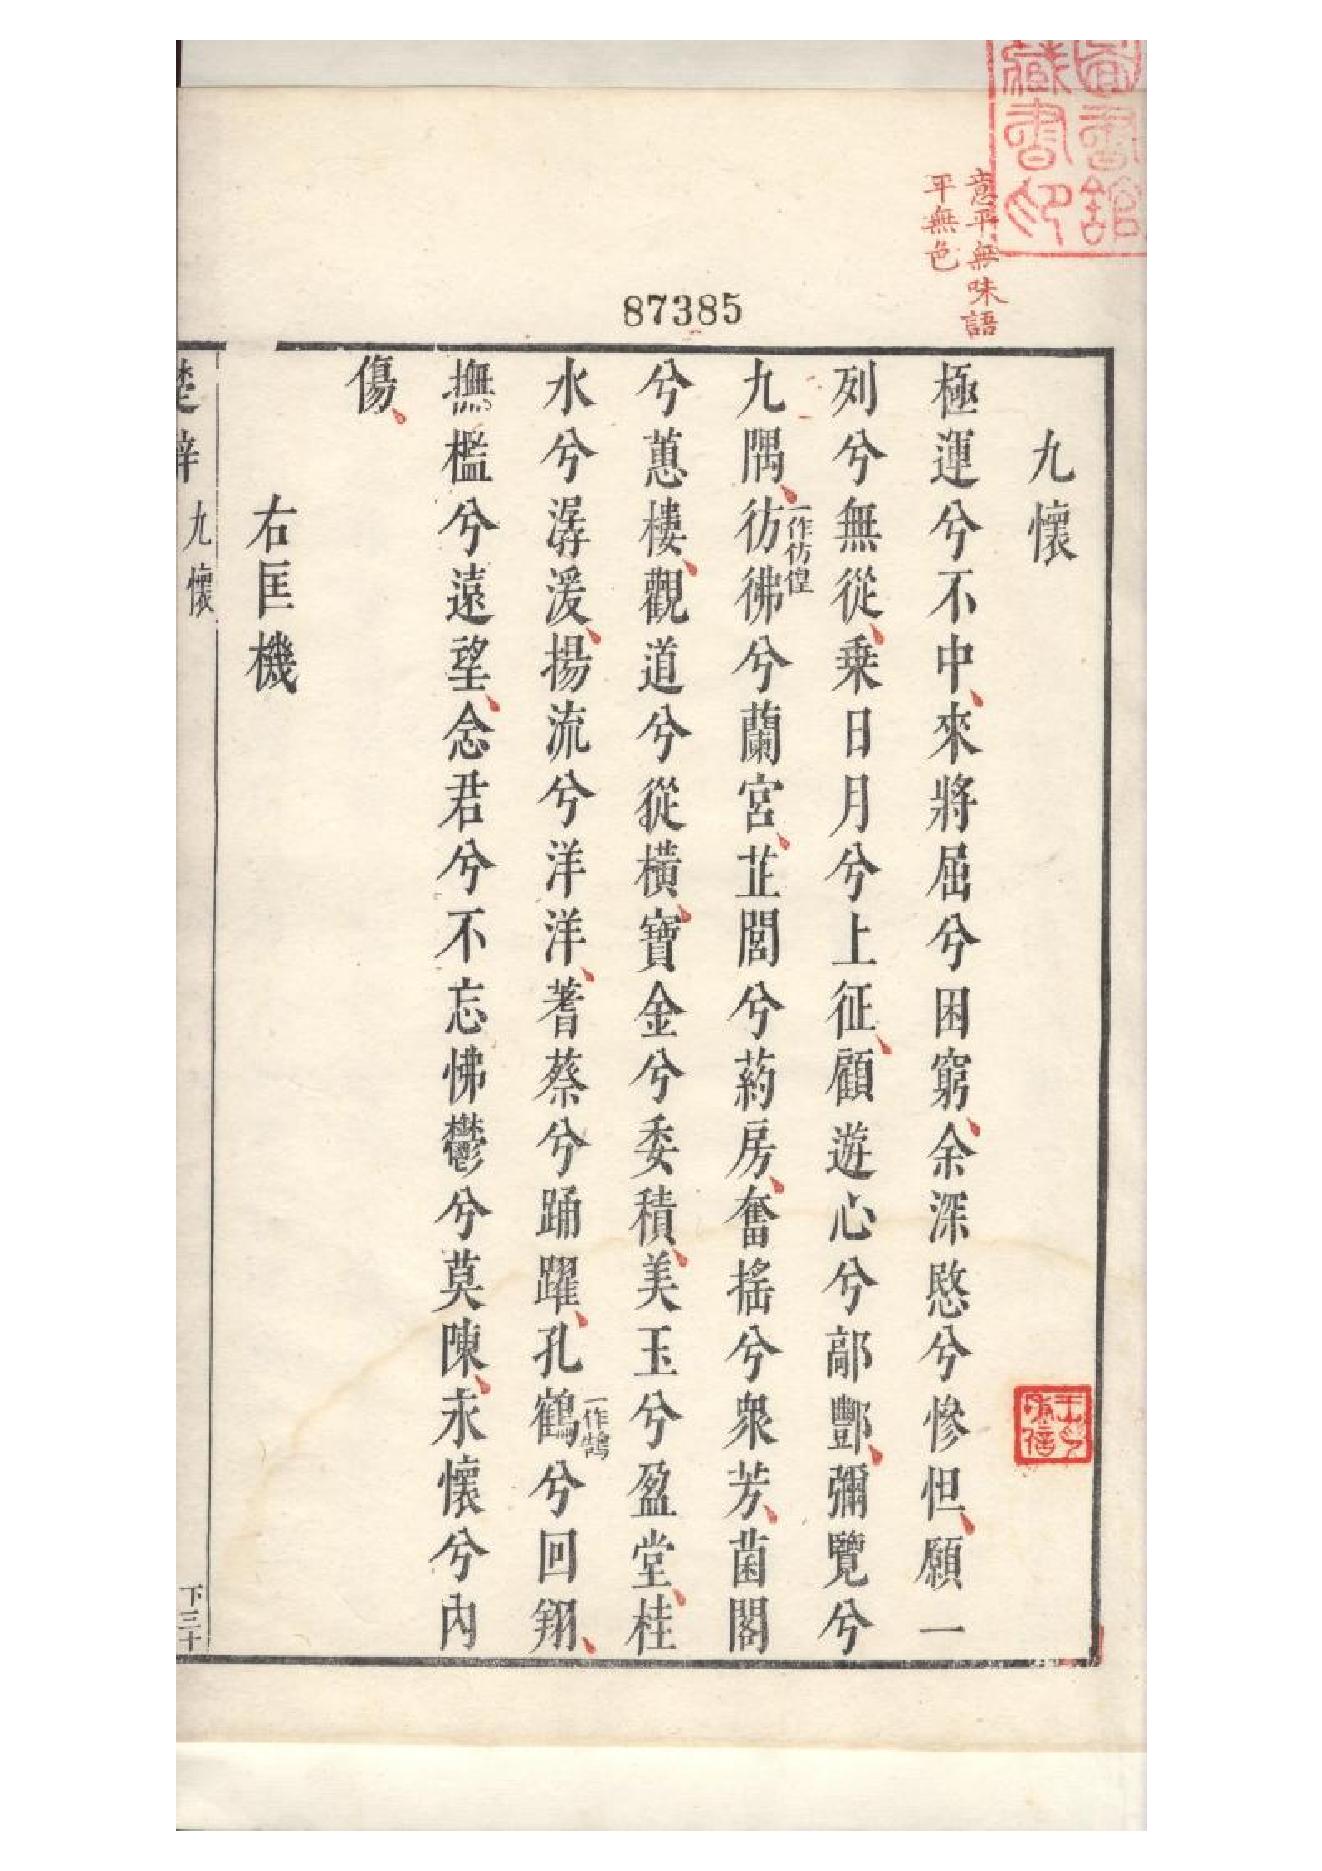 圖書館
藏書印
意平無味語
平無色
87385
九懷
極運兮不中來將屈兮困窮余深愍兮慘怛願一
列兮無從乘日月兮上征顧遊心兮鄗酆彌覽兮
九隅彷彿一作仿偟兮蘭宮芷閭兮葯房奮搖兮衆芳菌閣
兮蕙樓觀道兮從橫寶金兮委積美玉兮盈堂桂
水兮潺湲揚流兮洋洋蓍蔡兮踊躍孔鶴一作鵠兮回翔
撫檻兮遠望念君兮不忘怫鬱兮莫陳永懷兮內
傷
右匡機
楚辭
九懷
下三十